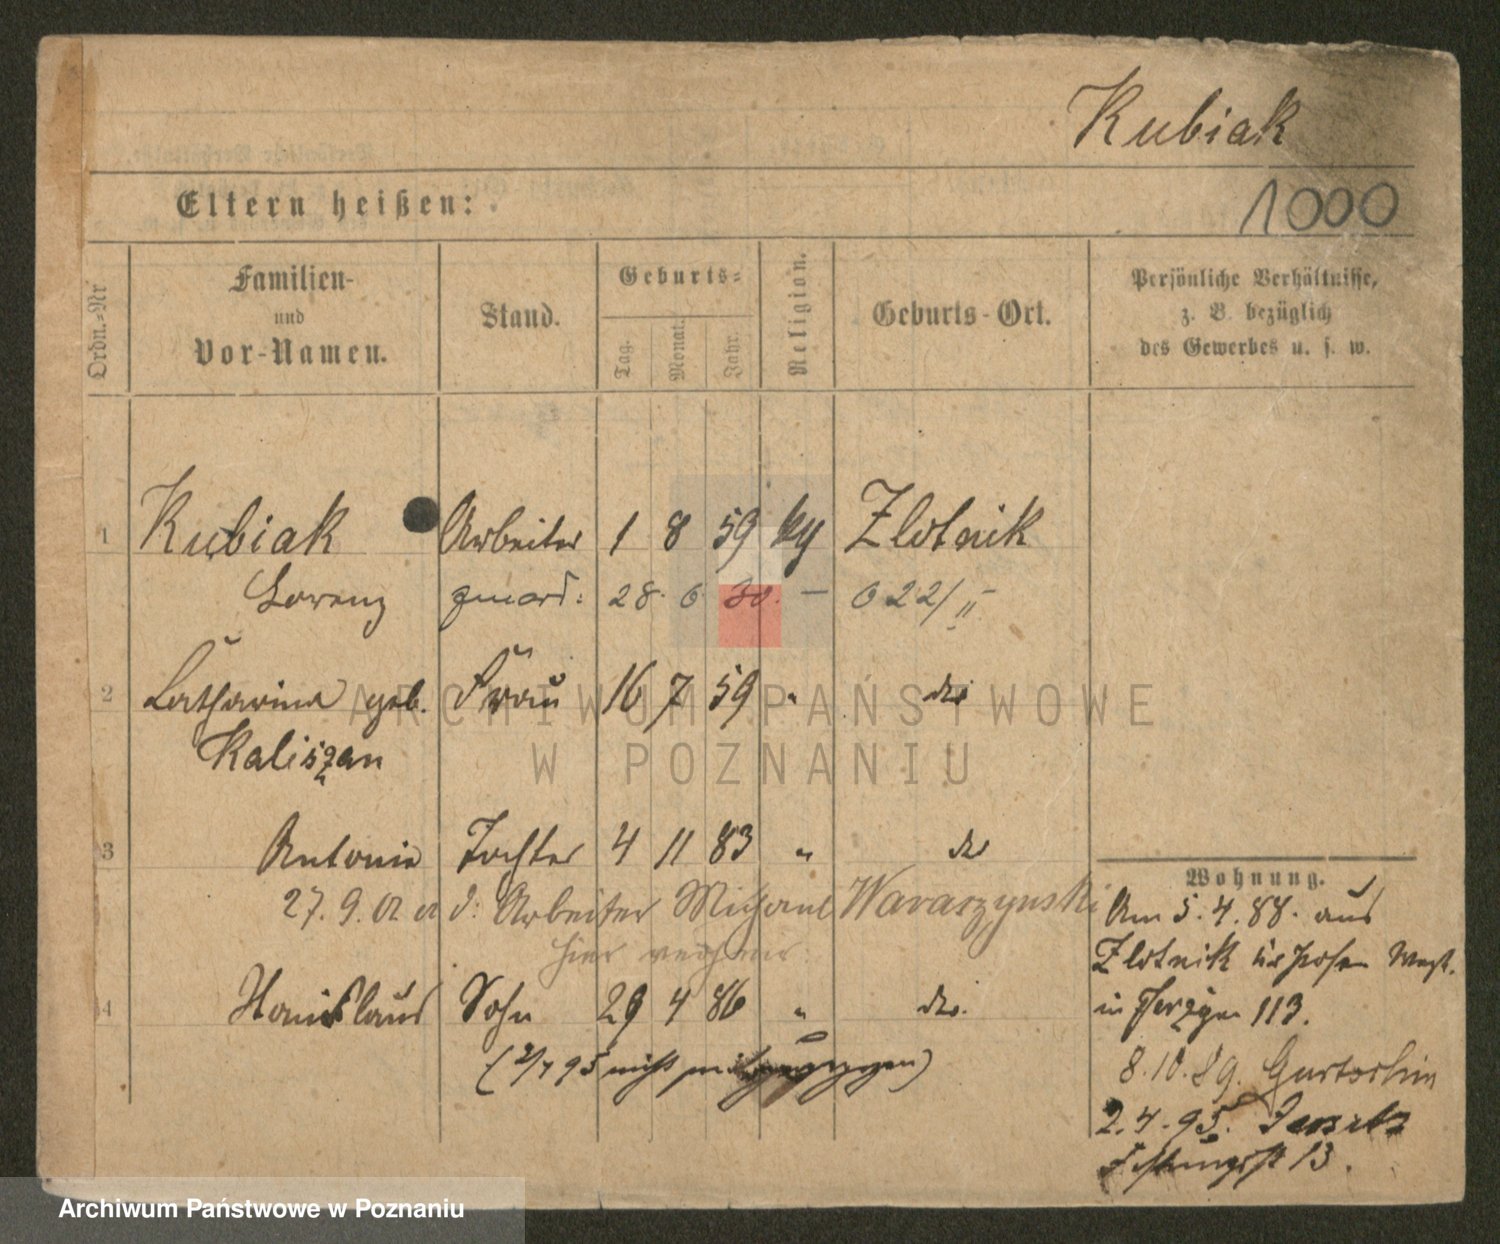 Kubiak
1000
Eltern heißen:
Ordn.-Nr
Familien-
und
Vor-Namen.
Stand.
Geburts-
Tag.
Monat.
Jahr.
Religion.
Geburts-Ort.
Persönliche Verhältnisse,
z. B. bezüglich
des Gewerbes u. s. w.
1 Kubiak Arbeiter 1 8 59 Zlotnik
Lorenz 28. 6 30. — 622/II
2 Catharina geb. Frau 16 7 59 " do
Kaliszan
3 Antonie Tochter 4 11 83 " do
27. 9. 02 d: Arbeiter Michael Wawaszynski
hier
4 Stanislaus Sohn 29 4 86 " do.
(2/4 95 nicht mitgezogen)
Wohnung.
Am 5. 4. 88. aus
Zlotnik Kr Posen West.
in Ferzyce 113.
8. 10. 89. Gurtschin
2. 4. 95. Jersitz
Festungsst 13.
ARCHIWUM PAŃSTWOWE
W POZNANIU
Archiwum Państwowe w Poznaniu